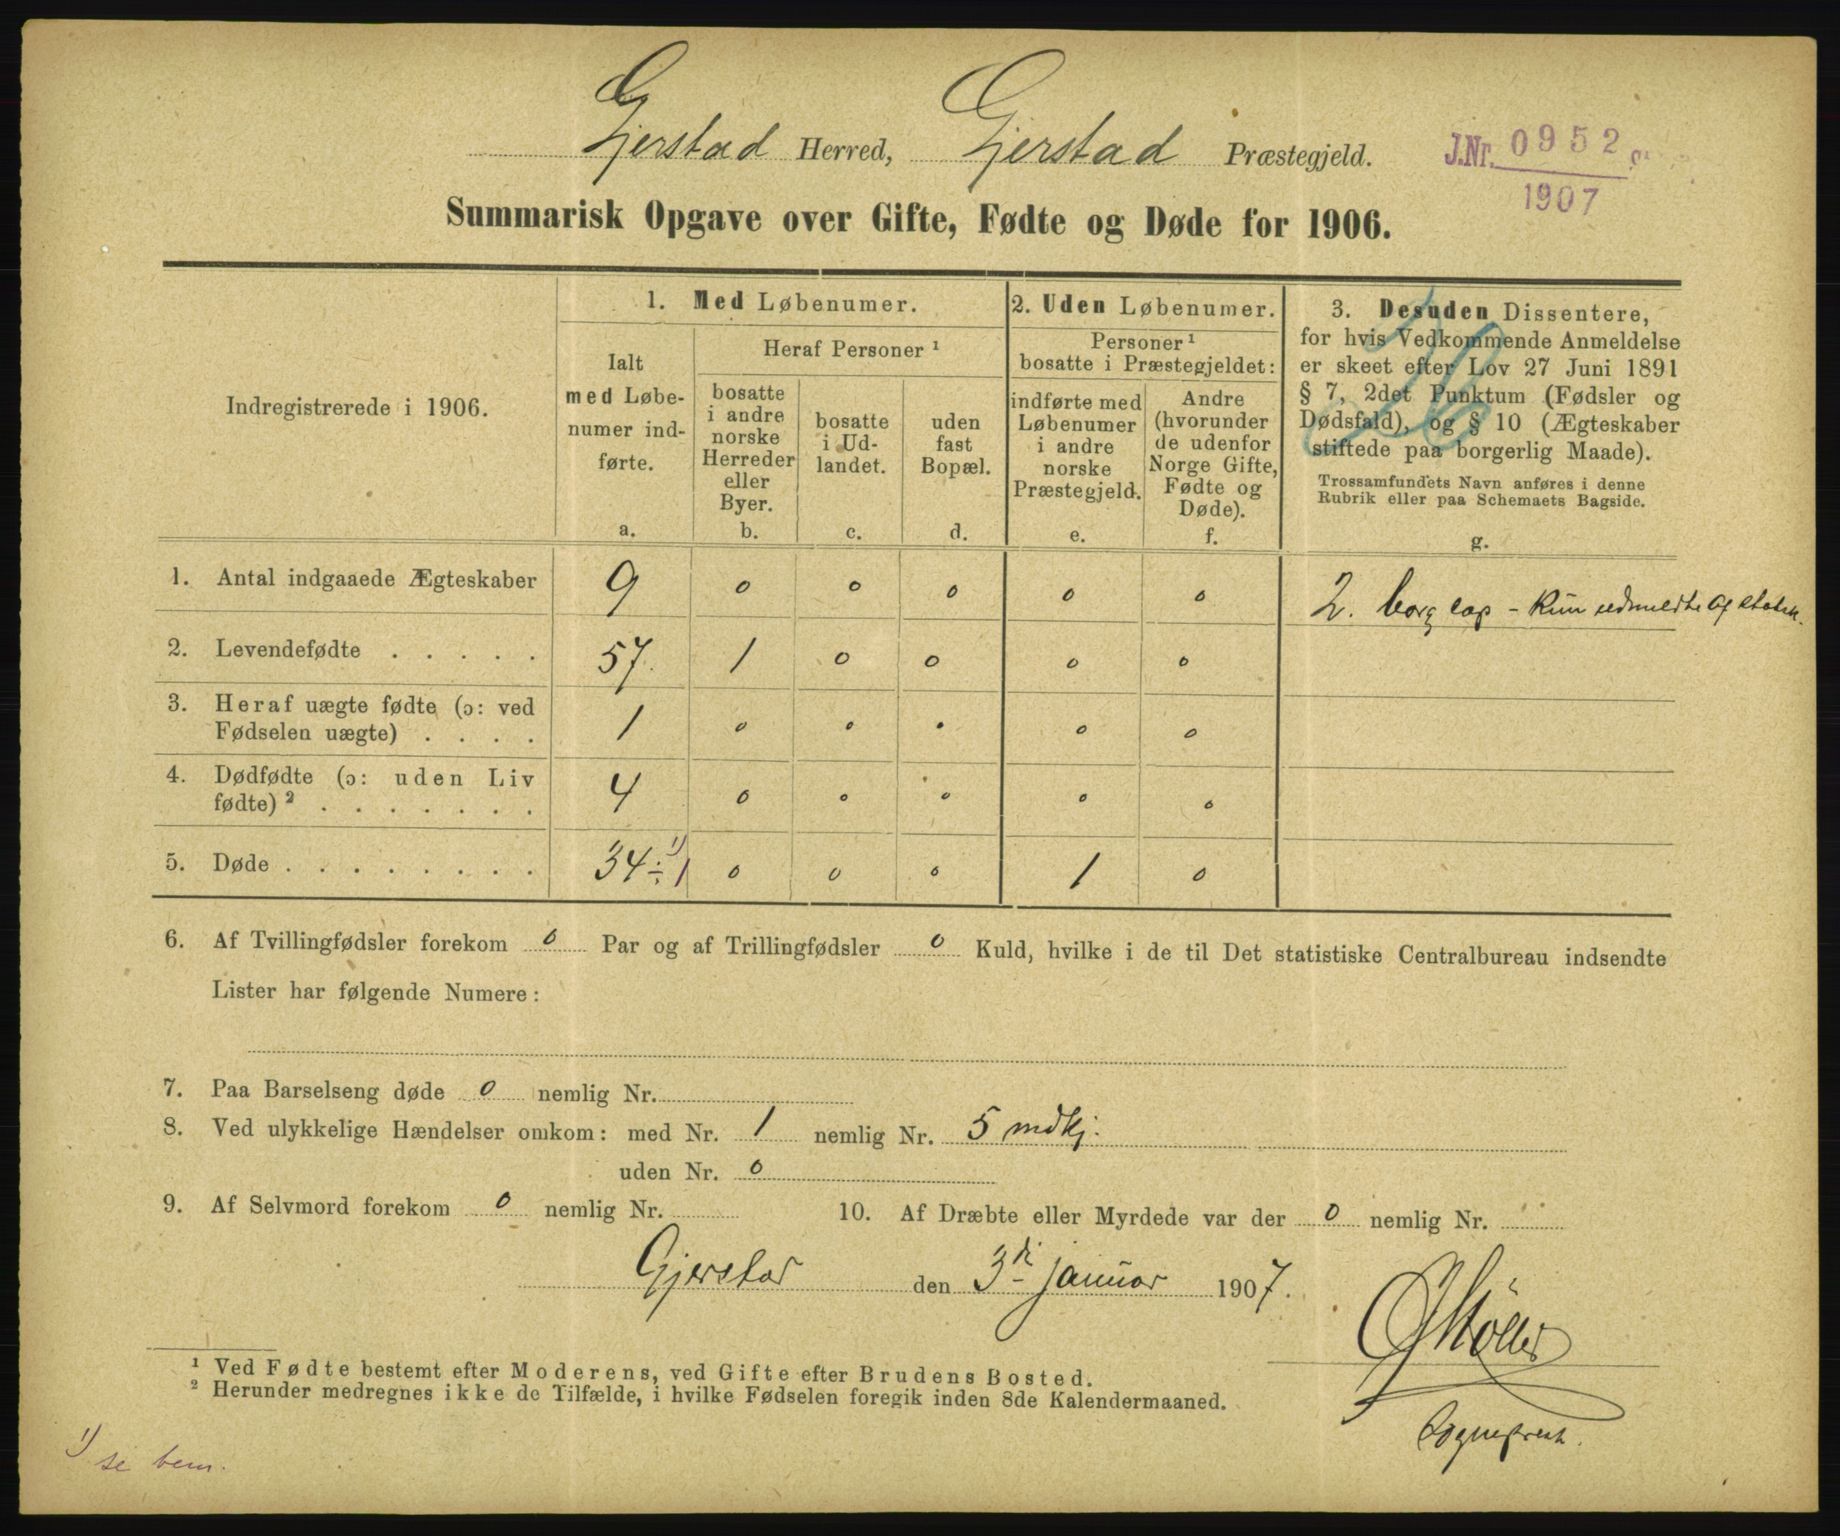 Gjerstad Herred, Gjerstad Præstegjeld.
J.Nr. 0952
1907
Summarisk Opgave over Gifte, Fødte og Døde for 1906.
Indregistrerede i 1906.
1. Med Løbenumer.
Ialt
med Løbe-
numer ind-
førte.
a.
Heraf Personer ¹
bosatte
i andre
norske
Herreder
eller
Byer.
b.
bosatte
i Ud-
landet.
c.
uden
fast
Bopæl.
d.
2. Uden Løbenumer.
Personer ¹
bosatte i Præstegjeldet:
indførte med
Løbenumer
i andre
norske
Præstegjeld.
e.
Andre
(hvorunder
de udenfor
Norge Gifte,
Fødte og
Døde).
f.
3. Desuden Dissentere,
for hvis Vedkommende Anmeldelse
er skeet efter Lov 27 Juni 1891
§ 7, 2det Punktum (Fødsler og
Dødsfald), og § 10 (Ægteskaber
stiftede paa borgerlig Maade).
Trossamfundets Navn anføres i denne
Rubrik eller paa Schemaets Bagside.
g.
1. Antal indgaaede Ægteskaber 9 0 0 0 0 0 2. borg cap - kun udmeldte af statsk.
2. Levendefødte . . . . . 57. 1 0 0 0 0
3. Heraf uægte fødte (ɔ: ved
Fødselen uægte) . . . . 1 0 0 0 0 0
4. Dødfødte (ɔ: uden Liv
fødte) ² . . . . . . . 4 0 0 0 0 0
5. Døde . . . . . . . . 34 ÷ 1 ¹) 0 0 0 1 0
6. Af Tvillingfødsler forekom 0 Par og af Trillingfødsler 0 Kuld, hvilke i de til Det statistiske Centralbureau indsendte
Lister har følgende Numere:
7. Paa Barselseng døde 0 nemlig Nr.
8. Ved ulykkelige Hændelser omkom: med Nr. 1 nemlig Nr. 5 mdkj.
uden Nr. 0
9. Af Selvmord forekom 0 nemlig Nr. 10. Af Dræbte eller Myrdede var der 0 nemlig Nr.
Gjerstad den 3di januar 1907.
Møller
Sogneprest.
¹ Ved Fødte bestemt efter Moderens, ved Gifte efter Brudens Bosted.
² Herunder medregnes ikke de Tilfælde, i hvilke Fødselen foregik inden 8de Kalendermaaned.
¹) se bem.